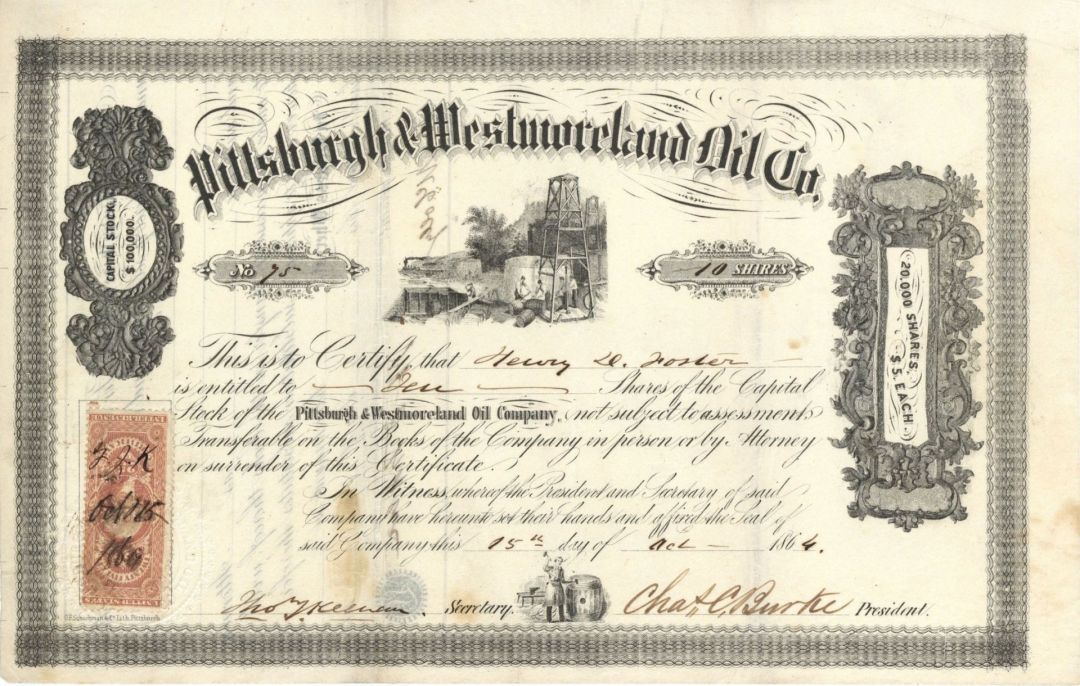 Pittsburgh & Westmoreland Oil Co.
CAPITAL STOCK,
$100,000.
No 75
10 SHARES
20,000 SHARES
$5. EACH.
This is to Certify, that Henry D. Foster
is entitled to Ten Shares of the Capital
Stock of the Pittsburgh & Westmoreland Oil Company, not subject to assessments
Transferable on the Books of the Company in person or by Attorney
on surrender of this Certificate.
In Witness, whereof the President and Secretary of said
Company have hereunto set their hands and affixed the Seal of
said Company this 15th day of Oct 1864.
Secretary.
Chas. C. Burke President.